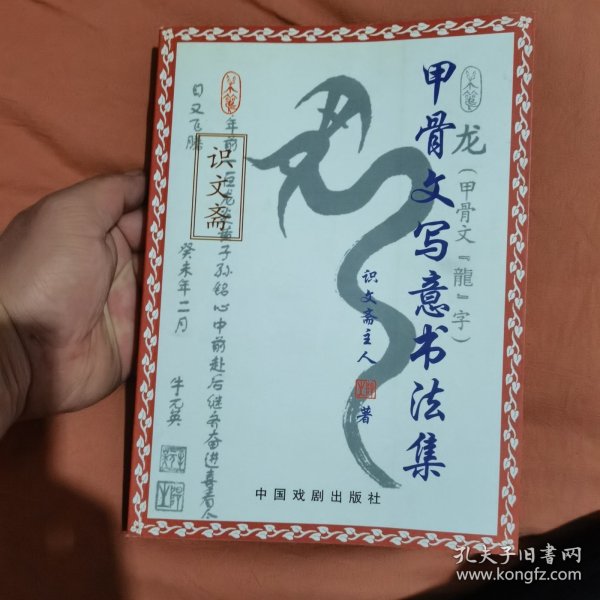 甲骨文写意书法集
龙
(甲骨文『龍』字)
识文斋主人
著
识文斋
年前
子孙铭心中前赴后继务奋进毒看今
日又飞腾
癸未年二月
牛元英
中国戏剧出版社
孔夫子旧书网
www.kongfz.com